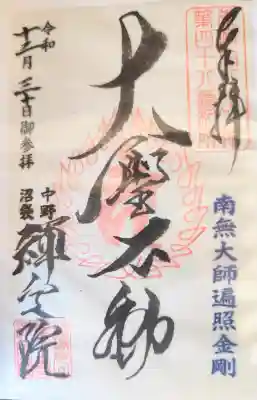 奉拝
第四十八番
南無大師遍照金剛
大聖不動
中野
沼袋
禅定院
令和
十二月三十日御参拝